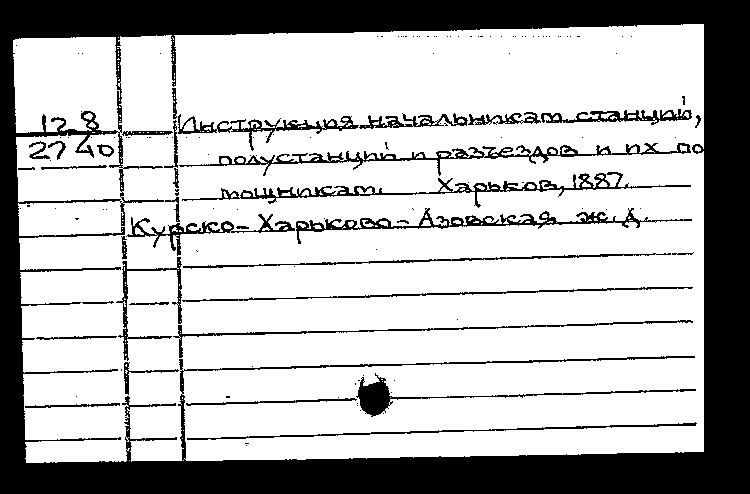 128 Инструкция начальникам станций,
2740 полустанций и разъездов и их по
мощникам. Харьков, 1887.
Курско-Харьково-Азовская ж.д.